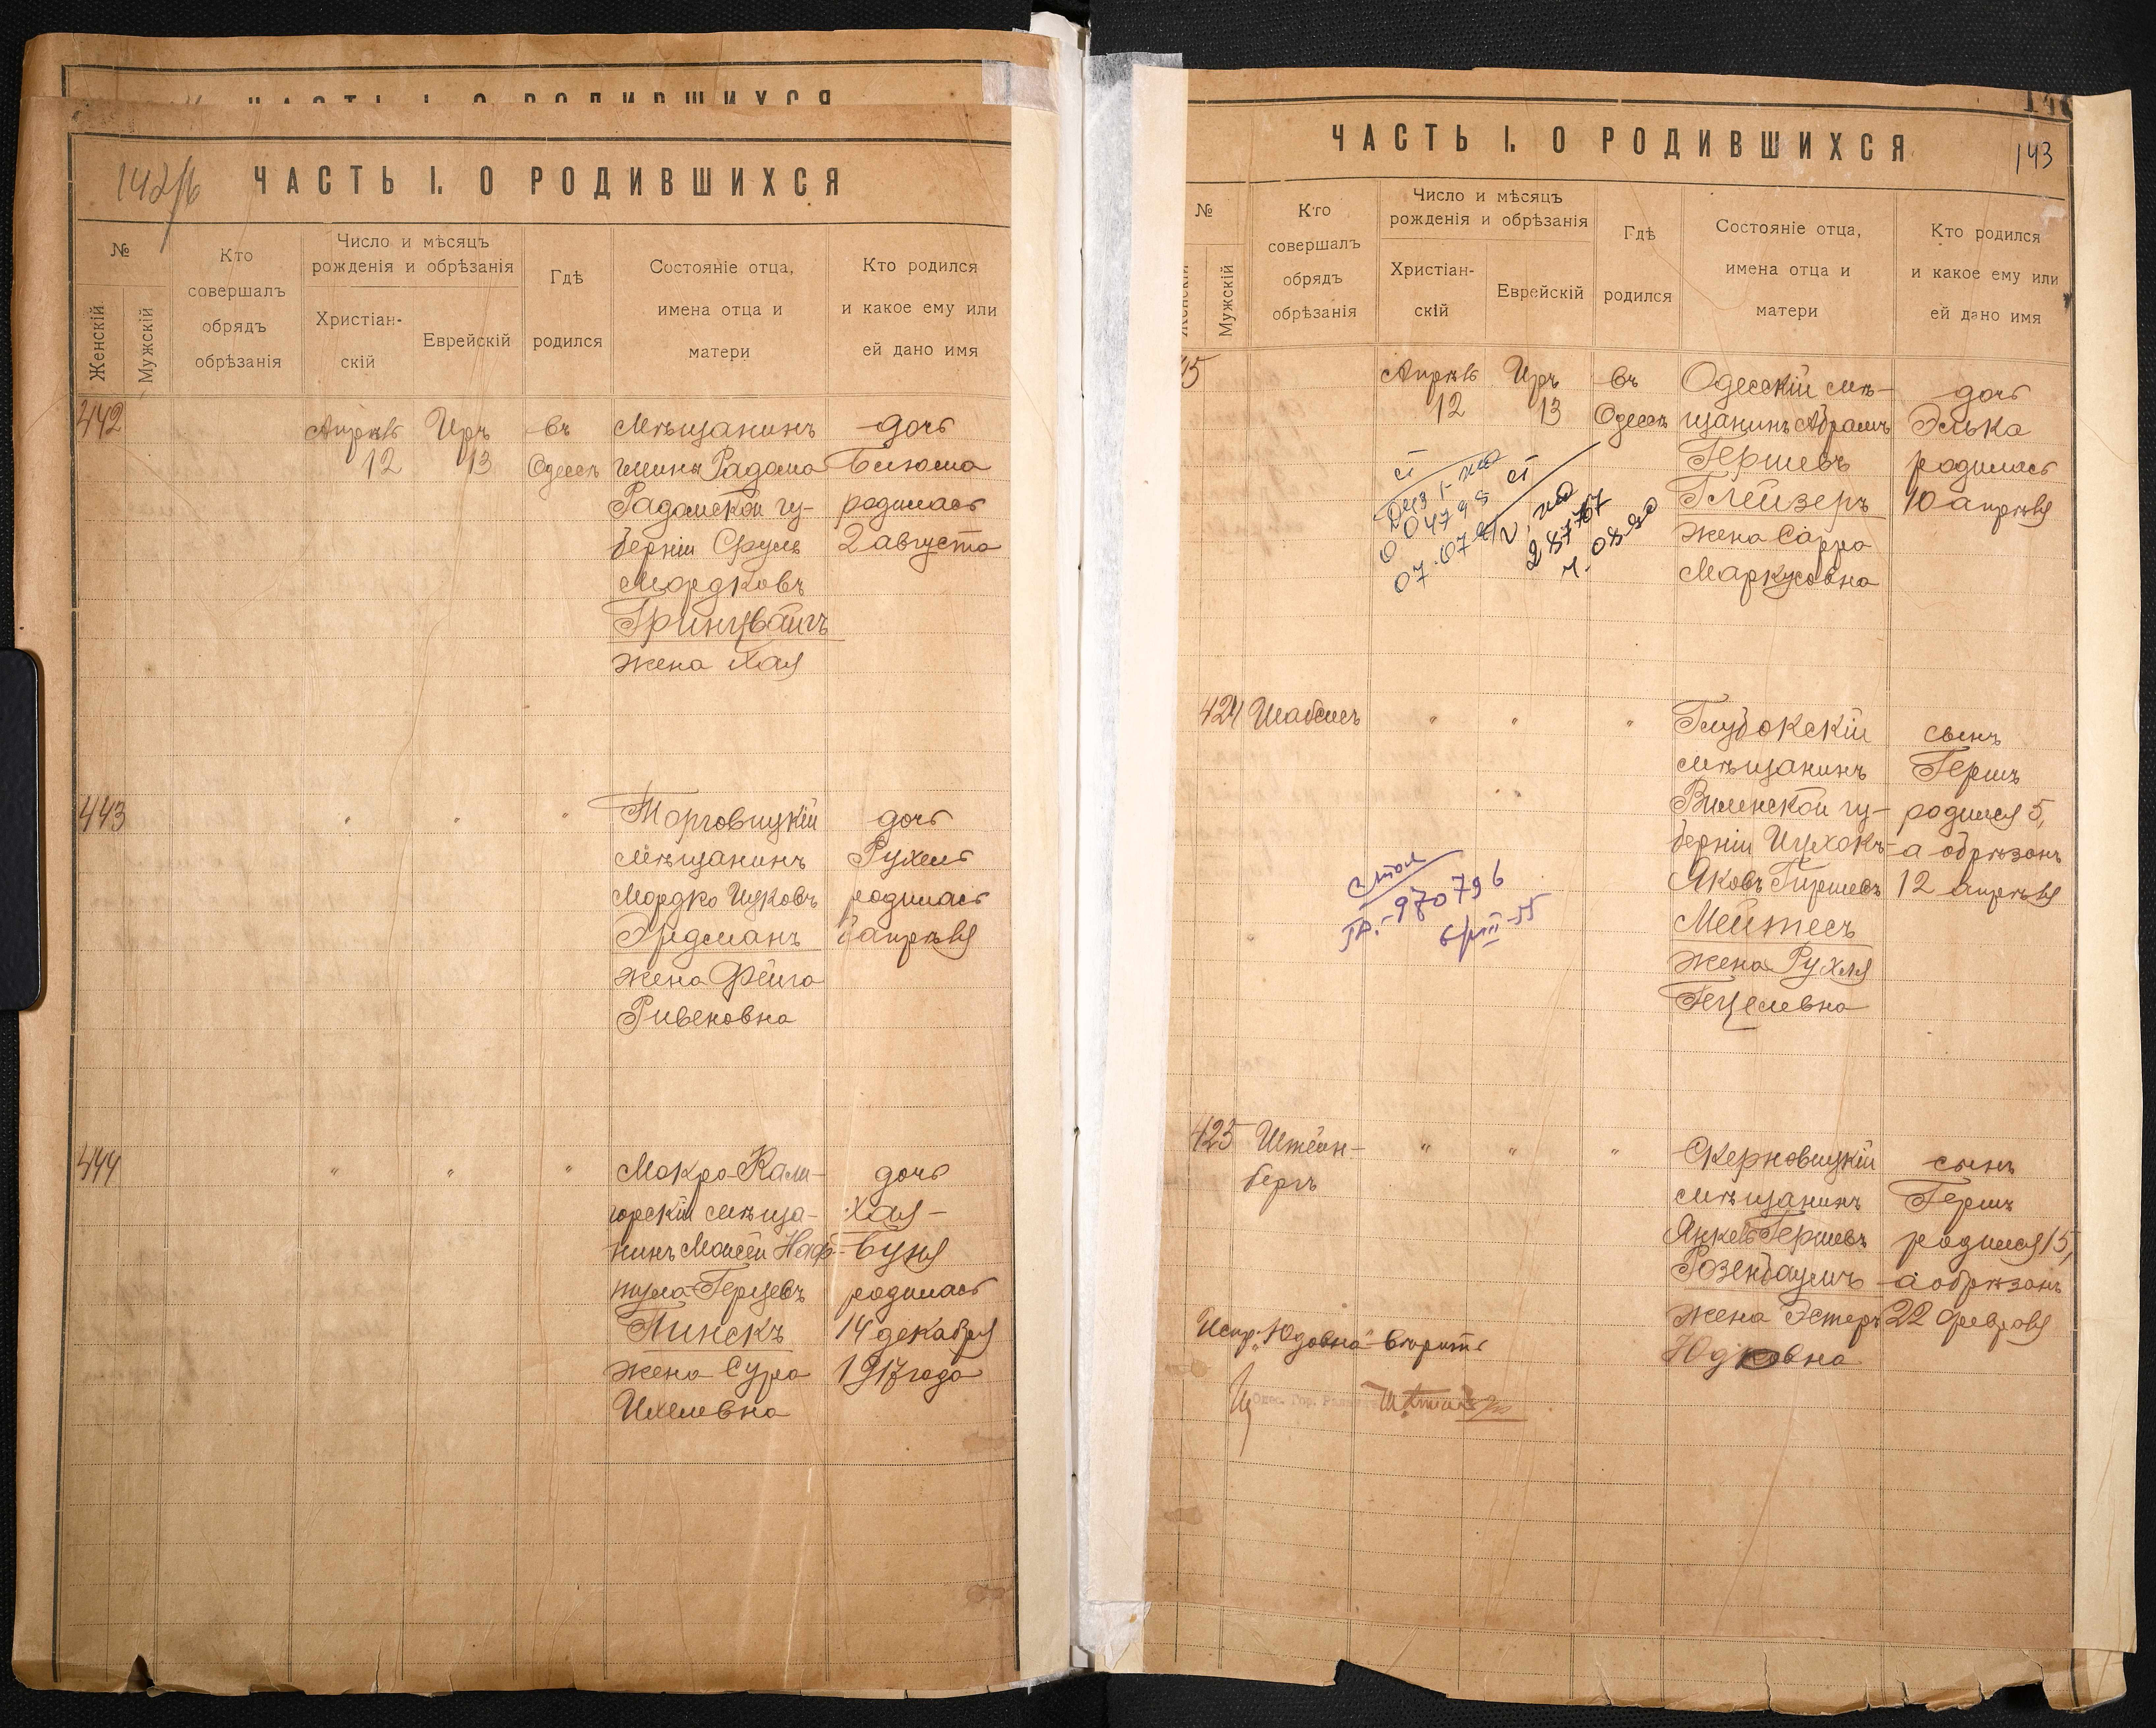 ЧАСТЬ I. О РОДИВШИХСЯ
142/б
ЧАСТЬ I. О РОДИВШИХСЯ
№
Женскій
Мужскій
Кто
совершалъ
обрядъ
обрѣзанія
Число и мѣсяцъ
рожденія и обрѣзанія
Христіан-
скій
Еврейскій
Гдѣ
родился
Состояніе отца,
имена отца и
матери
Кто родился
и какое ему или
ей дано имя
442
Апрѣль
12
Иръ
13
въ
Одессѣ
Мѣщанинъ
гмины Радома
Радомской гу-
берніи Сруль
Мордковъ
Гринцвайгъ
жена Хая
дочь
родилась
2 августа
443
"
"
"
Торговицкій
мѣщанинъ
Мордко Ицковъ
Эрдманъ
жена Фейга
Ривеновна
дочь
Рухель
родилась
апрѣля
444
"
"
"
Мокро-Кали-
горскій мѣща-
нинъ Моисей Наф-
тула Герцевъ
Пинскъ
жена Сура
Ихелевна
дочь
Хая-
Буня
родилась
14 декабря
1917 года
ЧАСТЬ I. О РОДИВШИХСЯ
143
№
Женскій
Мужскій
Кто
совершалъ
обрядъ
обрѣзанія
Число и мѣсяцъ
рожденія и обрѣзанія
Христіан-
скій
Еврейскій
Гдѣ
родился
Состояніе отца,
имена отца и
матери
Кто родился
и какое ему или
ей дано имя
45
Апрѣль
12
Иръ
13
въ
Одессѣ
Одесскій мѣ-
щанинъ Абрамъ
Гершевъ
Глейзеръ
жена Сарра
Маркусовна
дочь
Элька
родилась
10 апрѣля
424
Шабсисъ
"
"
"
Глубокскій
мѣщанинъ
Виленской гу-
берніи Ицхокъ-
Яковъ Гиршевъ
Мейтесъ
жена Рухля
Гецелевна
сынъ
Гершъ
родился 5,
а обрѣзанъ
12 апрѣля
970796
425
Штейн-
бергъ
"
"
"
Скерновицкій
мѣщанинъ
Янкель Гершевъ
Розенбаумъ
жена Эстеръ
Юдковна
сынъ
Гершъ
родился 15,
а обрѣзанъ
22 февраля
Испр. "Юдовна" вѣрить